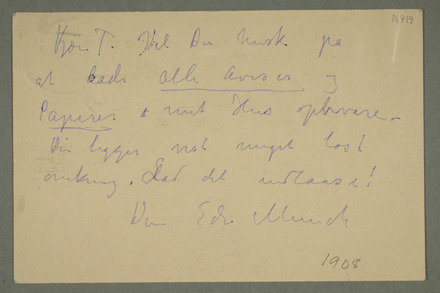 N 919
Kjære T. Vil De huske paa
at bade alle Aviser og
Papirer i mit Hus opbevares
Der ligger vist meget løst
omkring. Lad det indlaase!
Deres Edv Munch
1908